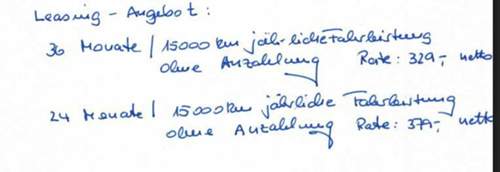 Leasing - Angebot:
30 Monate | 15000 km jährliche Fahrleistung
ohne Anzahlung Rate: 329,- netto
24 Monate | 15000km jährliche Fahrleistung
ohne Anzahlung Rate: 379,- netto